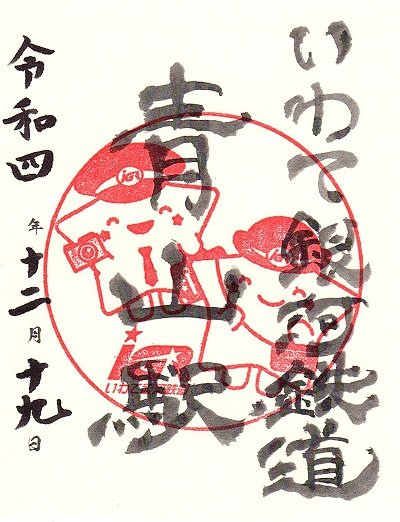 いわて銀河鉄道
青山駅
令和四年十二月十九日
igr
いわて銀河鉄道